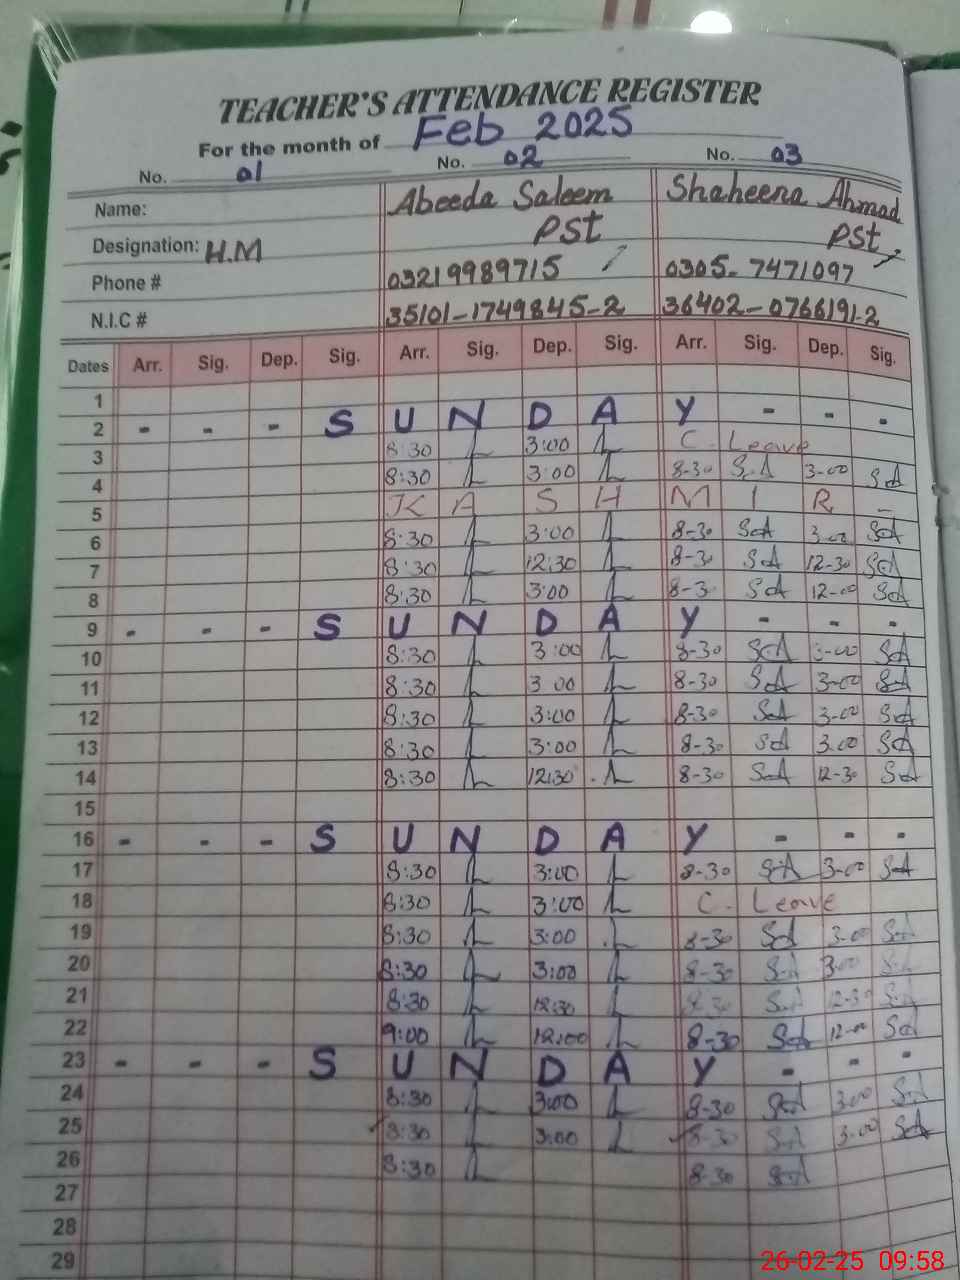 TEACHER'S ATTENDANCE REGISTER
For the month of Feb 2025
No. 01 No. 02 No. 03
Name: Abeeda Saleem Shaheena Ahmad
Designation: H.M PST PST
Phone # 03219989715 0305-7471097
N.I.C # 35101-1749845-2 36402-0766191-2
Dates Arr. Sig. Dep. Sig. Arr. Sig. Dep. Sig. Arr. Sig. Dep. Sig.
1
2 - - - S U N D A Y - - -
3 8:30 3:00 C. Leave
4 8:30 3:00 8-30 SA 3-00 SA
5 K A S H M I R -
6 8:30 3:00 8-30 SA 3-00 SA
7 8:30 12:30 8-30 SA 12-30 SA
8 8:30 3:00 8-3 SA 12-00 SA
9 - - - S U N D A Y - - -
10 8:30 3:00 8-30 SA 3-00 SA
11 8:30 3 00 8-30 SA 3-00 SA
12 8:30 3:00 8-30 SA 3-00 SA
13 8:30 3:00 8-30 SA 3.00 SA
14 8:30 12:30 8-30 SA 12-30 SA
15
16 - - - S U N D A Y - - -
17 8:30 3:00 8-30 SA 3-00 SA
18 8:30 3:00 C. Leave
19 8:30 3:00 8-30 SA 3-00 SA
20 8:30 3:00 8-30 SA 3-00 SA
21 8:30 12:30 8-30 SA 12-30 SA
22 9:00 12:00 8-30 SA 12-00 SA
23 - - - S U N D A Y - - -
24 8:30 3:00 8-30 SA 3-00 SA
25 8:30 3:00 8-30 SA 3-00 SA
26 8:30 8-30 SA
27
28
29
26-02-25 09:58